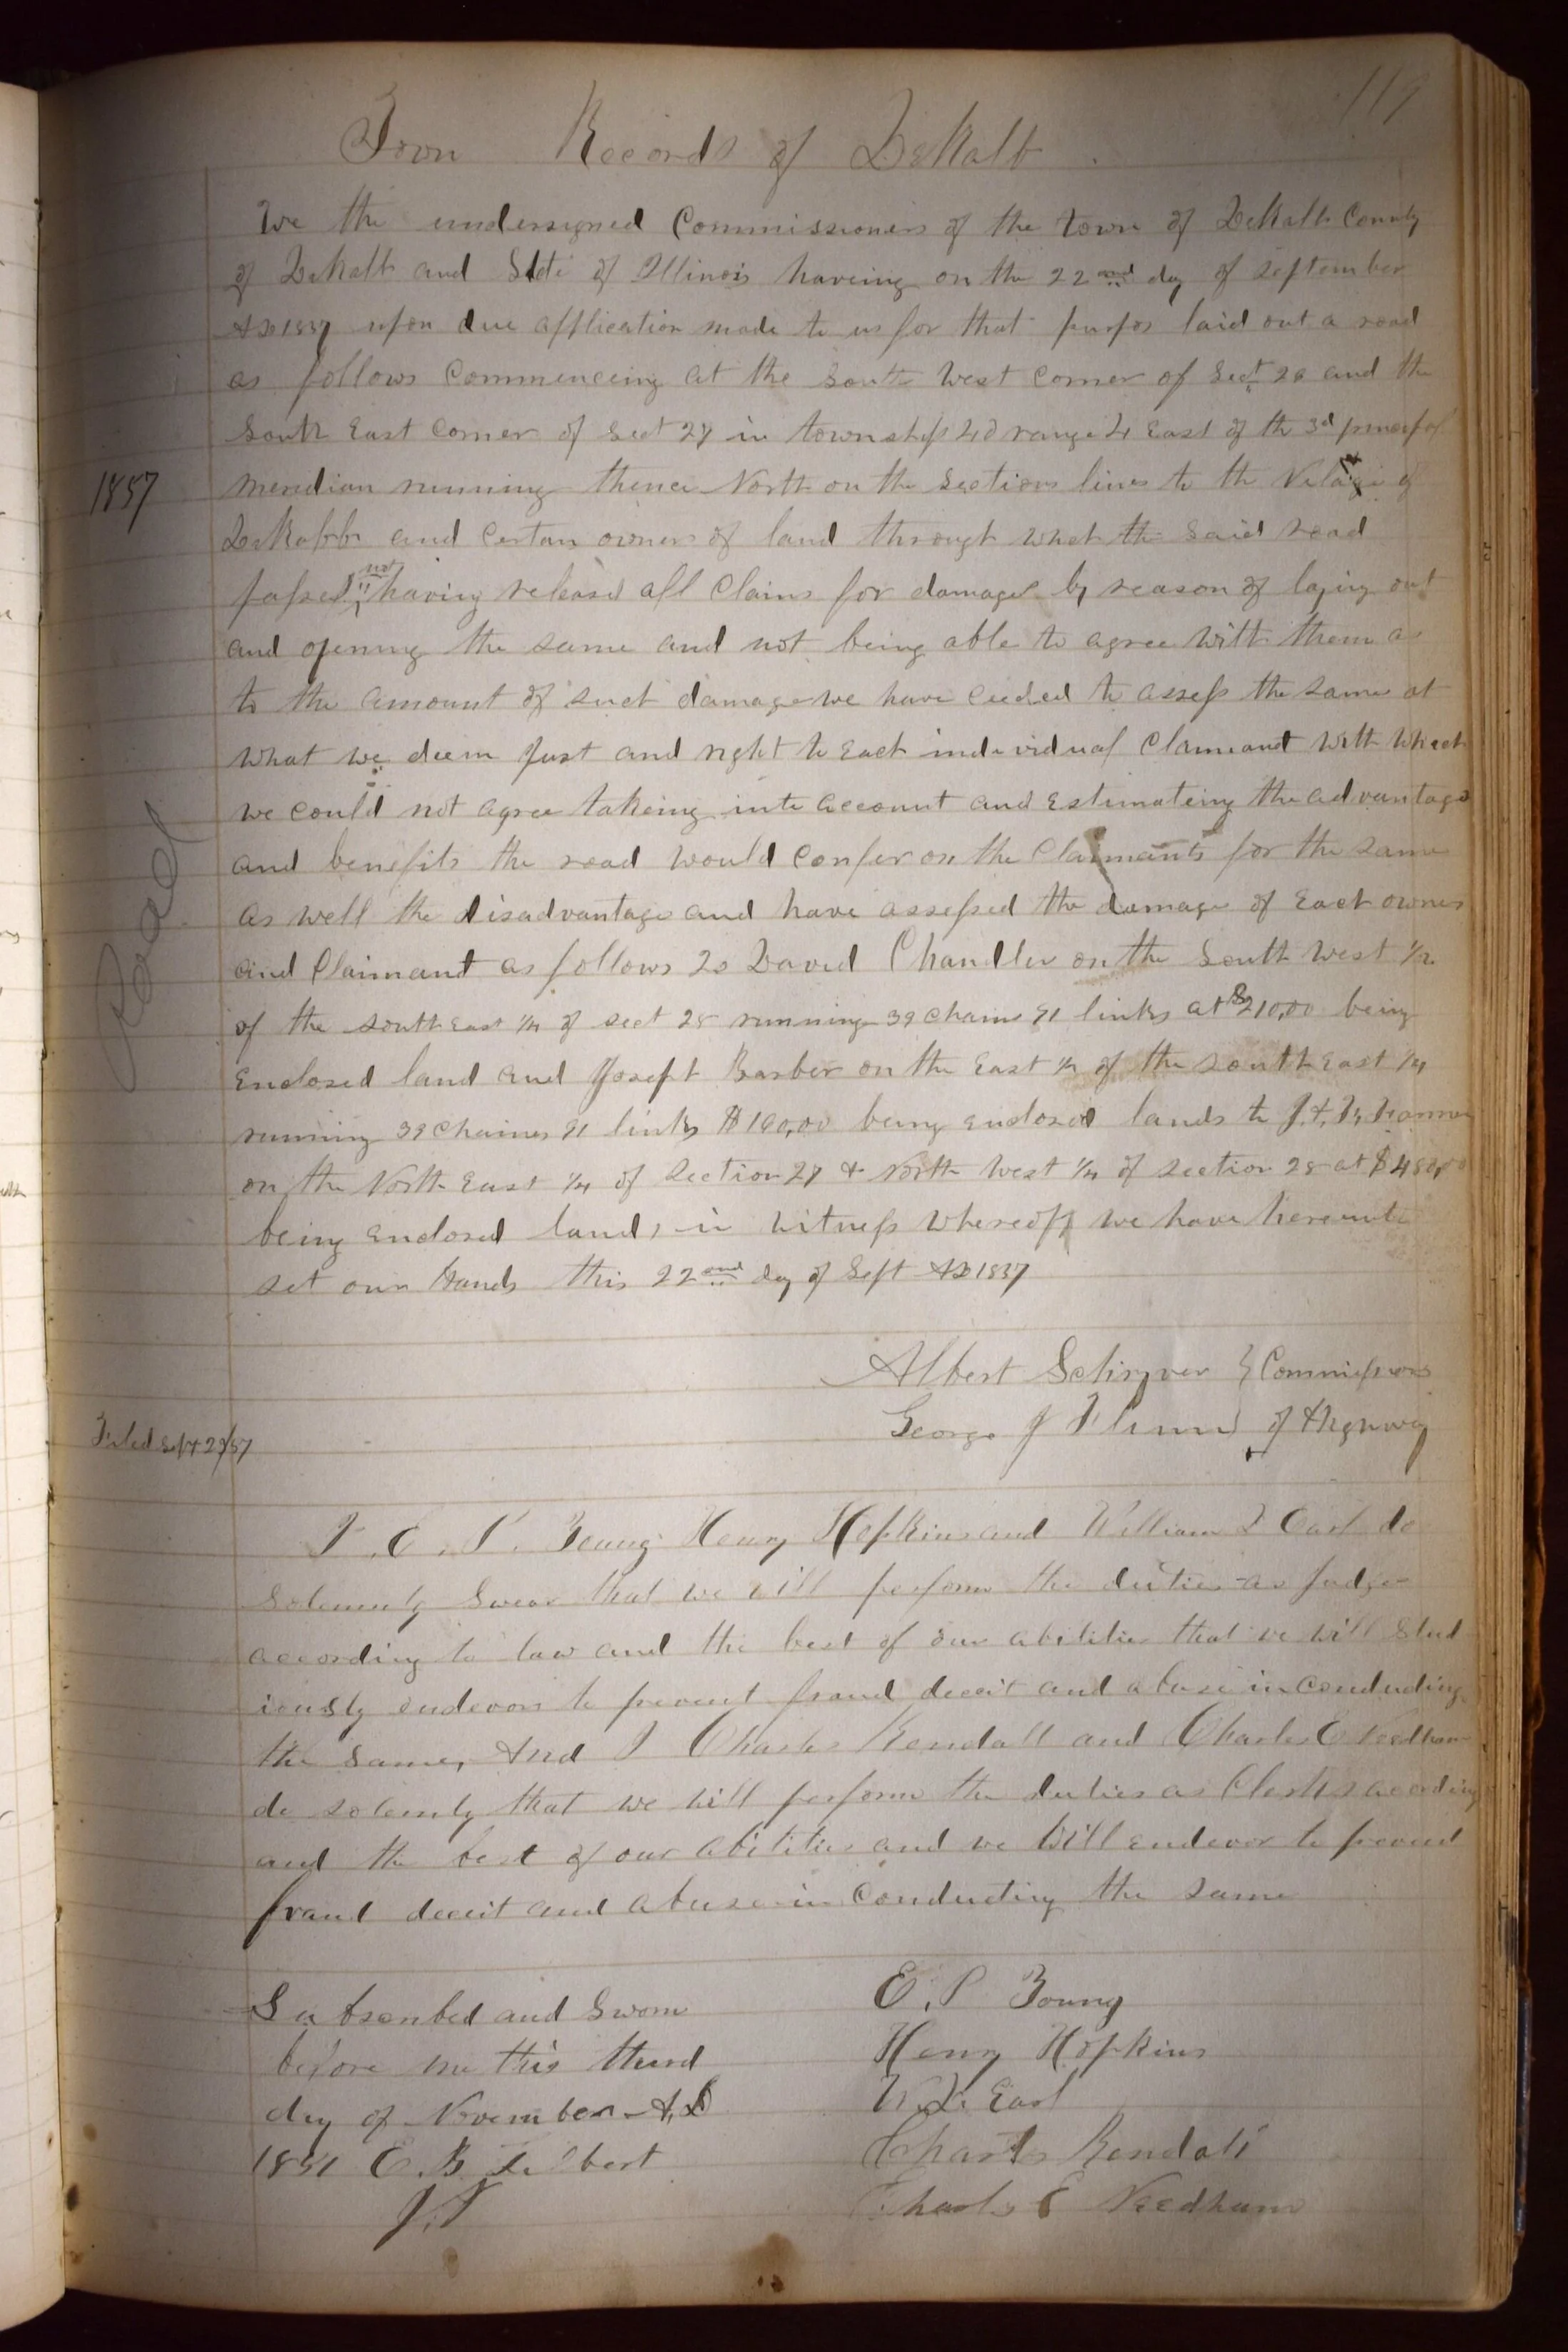 119
Town Records of DeKalb.
We the undersigned Commissioners of the town of DeKalb County
of DeKalb and State of Illinois haveing on the 22nd day of September
AD 1857 upon due application made to us for that purpos laid out a road
as follows Commenceing at the South West Corner of Sect 26 and the
South East Corner of Sect 27 in township 40 range 4 East of the 3d principal
1857
meridian running thence North on the Sections lines to the Village of
DeKalb and Certan owners of land through what the said road
passes not having released all Claims for damage by reason of laying out
and opening the same and not being able to agree with them as
to the amount of such damage we have to assess the same at
what we deem Just and right to Each individual Claimant with which
we could not agree takeing into account and Estimateing the advantage
and benefits the road would Confer on the Claimants for the same
Road
as well the disadvantage and have assessed the damage of Each owner
and Claimant as follows To David Chandler on the South West 1/4
of the south East 1/4 of sect 28 running 39 Chains 91 links at $210,00 being
Enclosed land and Joseph Barber on the East 1/2 of the south East 1/4
running 39 Chaines 91 links $160,00 being Enclosed lands to J. F.
on the North East 1/4 of Section 27 & North West 1/4 of Section 28 at
being Enclosed land, in Witness Whereoff we have hereunto
set our Hands this 22nd day of Sept AD 1857
Albert Schryver } Commissioners
George J Flinn } of Highway
Filed Sept 29/57
I E. P. Young Henry Hopkins and William L Earl do
Solemnly Swear that we will perform the duties as Judge
according to law and the best of our abilities that we will Stud
iously endevors to prevent fraud deceit and abuse in Conducting
the Same, And I Charles Kendall and Charles E Needham
do solemnly that we will perform the duties as Clerks acording
and the best of our abilities and we Will endevor to prevent
fraud deceit and abuse in Conducting the same
Subscribed and Sworn
before me this third
day of November A,D
1857 E. B. Gilbert
J.P
E. P Young
Henry Hopkins
W. L. Earl
Charls Kendall
Charls E Needham